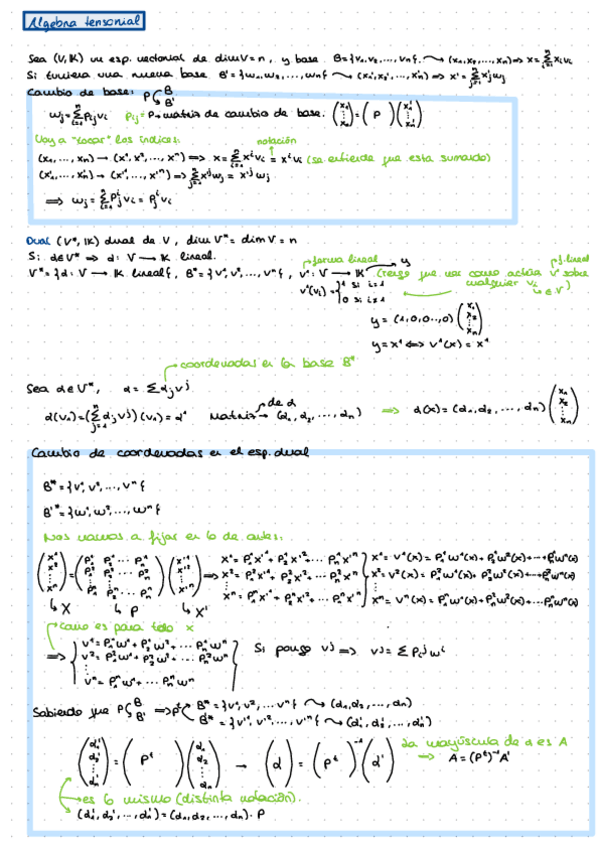 Algebra tensorial
Sea (V, K) un esp. vectorial de dim V = n, y base B={v₁, v₂, ..., vₙ} ⤳ (x₁, x₂, ..., xₙ) ⇒ x = Σ xᵢvᵢ
Si tuviera una nueva base B'={w₁, w₂, ..., wₙ} ⤳ (x'₁, x'₂, ..., x'ₙ) ⇒ x' = Σ x'ⱼwⱼ
Cambio de base: P B B'
wⱼ = Σ pᵢⱼvᵢ pᵢⱼ = P → matriz de cambio de base. (x₁ ⋮ xₙ) = (P) (x'₁ ⋮ x'ₙ)
Voy a "tocar" los índices: notación
(x₁, ..., xₙ) → (x¹, x², ..., xⁿ) ⇒ x = Σ xⁱvᵢ = xⁱvᵢ (se entiende que esta sumado)
(x'₁, ..., x'ₙ) → (x'¹, ..., x'ⁿ) ⇒ Σ x'ʲwⱼ = x'ʲwⱼ
⇒ wⱼ = Σ pⁱⱼvᵢ = pⁱⱼvᵢ
Dual (V*, K) dual de V, dim V* = dim V = n
Si α∈V* ⇒ α: V → K lineal.
forma lineal y f. lineal
V* = {α: V → K lineal}, B* = {v¹, v², ..., vⁿ}, v¹: V → K (tengo que ver como actúa v¹ sobre cualquier vᵢ) ∈ V
v¹(vᵢ) = {1 si i=1
0 si i≠1
y = (1, 0, 0..., 0) (x₁ x₂ ⋮ xₙ)
y = x¹ ⟺ v¹(x) = x¹
coordenadas en la base B*
Sea α∈V*, α = Σ αⱼvʲ
de α
α(v₁) = (Σ αⱼvʲ)(v₁) = α¹ Matriz → (α₁, α₂, ..., αₙ) ⇒ α(x) = (α₁, α₂, ..., αₙ) (x₁ x₂ ⋮ xₙ)
Cambio de coordenadas en el esp. dual
B* = {v¹, v², ..., vⁿ}
B'* = {w¹, w², ..., wⁿ}
Nos vamos a fijar en lo de antes:
(x¹ x² ⋮ xⁿ) = (P¹₁ P¹₂ ... P¹ₙ ⋮ Pⁿ₁ Pⁿ₂ ... Pⁿₙ) (x'¹ x'² ⋮ x'ⁿ) ⇒ x¹ = P¹₁x'¹ + P¹₂x'² + ... P¹ₙx'ⁿ } x¹ = v¹(x) = P¹₁w¹(x) + P¹₂w²(x) + ... + P¹ₙwⁿ(x)
x² = P²₁x'¹ + P²₂x'² + ... P²ₙx'ⁿ } x² = v²(x) = P²₁w¹(x) + P²₂w²(x) + ... + P²ₙwⁿ(x)
xⁿ = Pⁿ₁x'¹ + Pⁿ₂x'² + ... Pⁿₙx'ⁿ } xⁿ = vⁿ(x) = Pⁿ₁w¹(x) + Pⁿ₂w²(x) + ... Pⁿₙwⁿ(x)
↳ X ↳ P ↳ X'
como es para todo x
⇒ { v¹ = P¹₁w¹ + P¹₂w² + ... P¹ₙwⁿ
v² = P²₁w¹ + P²₂w² + ... P²ₙwⁿ
⋮
vⁿ = Pⁿ₁w¹ + ... Pⁿₙwⁿ
Si pongo vʲ ⇒ vʲ = Σ Pᵢʲ wⁱ
Sabiendo que P B B' ⇒ Pᵗ B* = {v¹, v², ... vⁿ} ⤳ (α₁, α₂, ..., αₙ)
B'* = {v'¹, v'², ..., v'ⁿ} ⤳ (α'₁, α'₂, ..., α'ₙ)
(α'₁ α'₂ ⋮ α'ₙ) = (Pᵗ) (α₁ α₂ ⋮ αₙ) → (α) = (Pᵗ)⁻¹ (α') La mayúscula de α es A
→ A = (Pᵗ)⁻¹A'
es lo mismo (distinta notación).
(α'₁, α'₂, ..., α'ₙ) = (α₁, α₂, ..., αₙ) · P